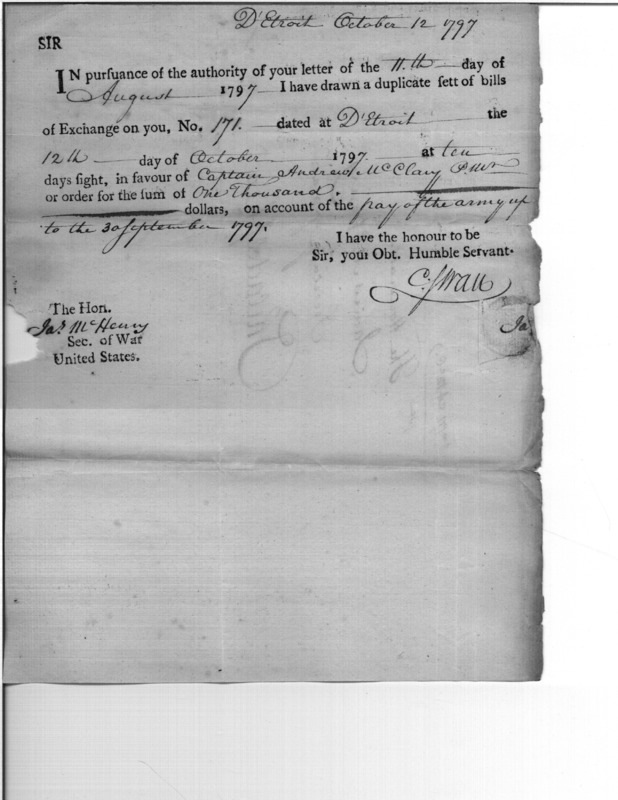 D'Etroit October 12 1797
SIR
IN pursuance of the authority of your letter of the 11.th day of
August 1797 I have drawn a duplicate sett of bills
of Exchange on you, No. 171. dated at D'Etroit the
12th day of October 1797. at ten
days sight, in favour of Captain Andrew McClary P.Mr
or order for the sum of One Thousand.
dollars, on account of the pay of the army up
to the 30 September 1797.
I have the honour to be
Sir, your Obt. Humble Servant.
C. Swan
The Hon.
Jas. McHenry
Sec. of War
United States.
Ja